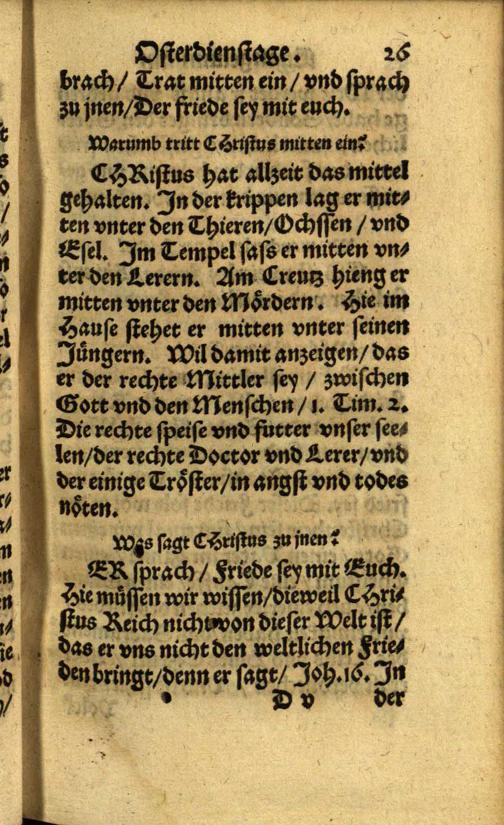 Osterdienstage. 26
brach/ Trat mitten ein/ vnd sprach
zu jnen/Der friede sey mit euch.
Warumb tritt CHristus mitten ein?
CHRistus hat allzeit das mittel
gehalten. In der krippen lag er mit⸗
ten vnter den Thieren/Ochssen/ vnd
Esel. Im Tempel sass er mitten vn⸗
ter den Lerern. Am Creutz hieng er
mitten vnter den Mördern. Hie im
Hause stehet er mitten vnter seinen
Jüngern. Wil damit anzeigen/ das
er der rechte Mittler sey/ zwischen
Gott vnd den Menschen/1. Tim. 2.
Die rechte speise vnd futter vnser see⸗
len/der rechte Doctor vnd Lerer/vnd
der einige Tröster/in angst vnd todes
nöten.
Was sagt CHristus zu jnen?
ER sprach/ Friede sey mit Euch.
Hie müssen wir wissen/dieweil CHri⸗
stus Reich nicht von dieser Welt ist/
das er vns nicht den weltlichen Frie⸗
den bringt/denn er sagt/ Joh.16. In
D v der